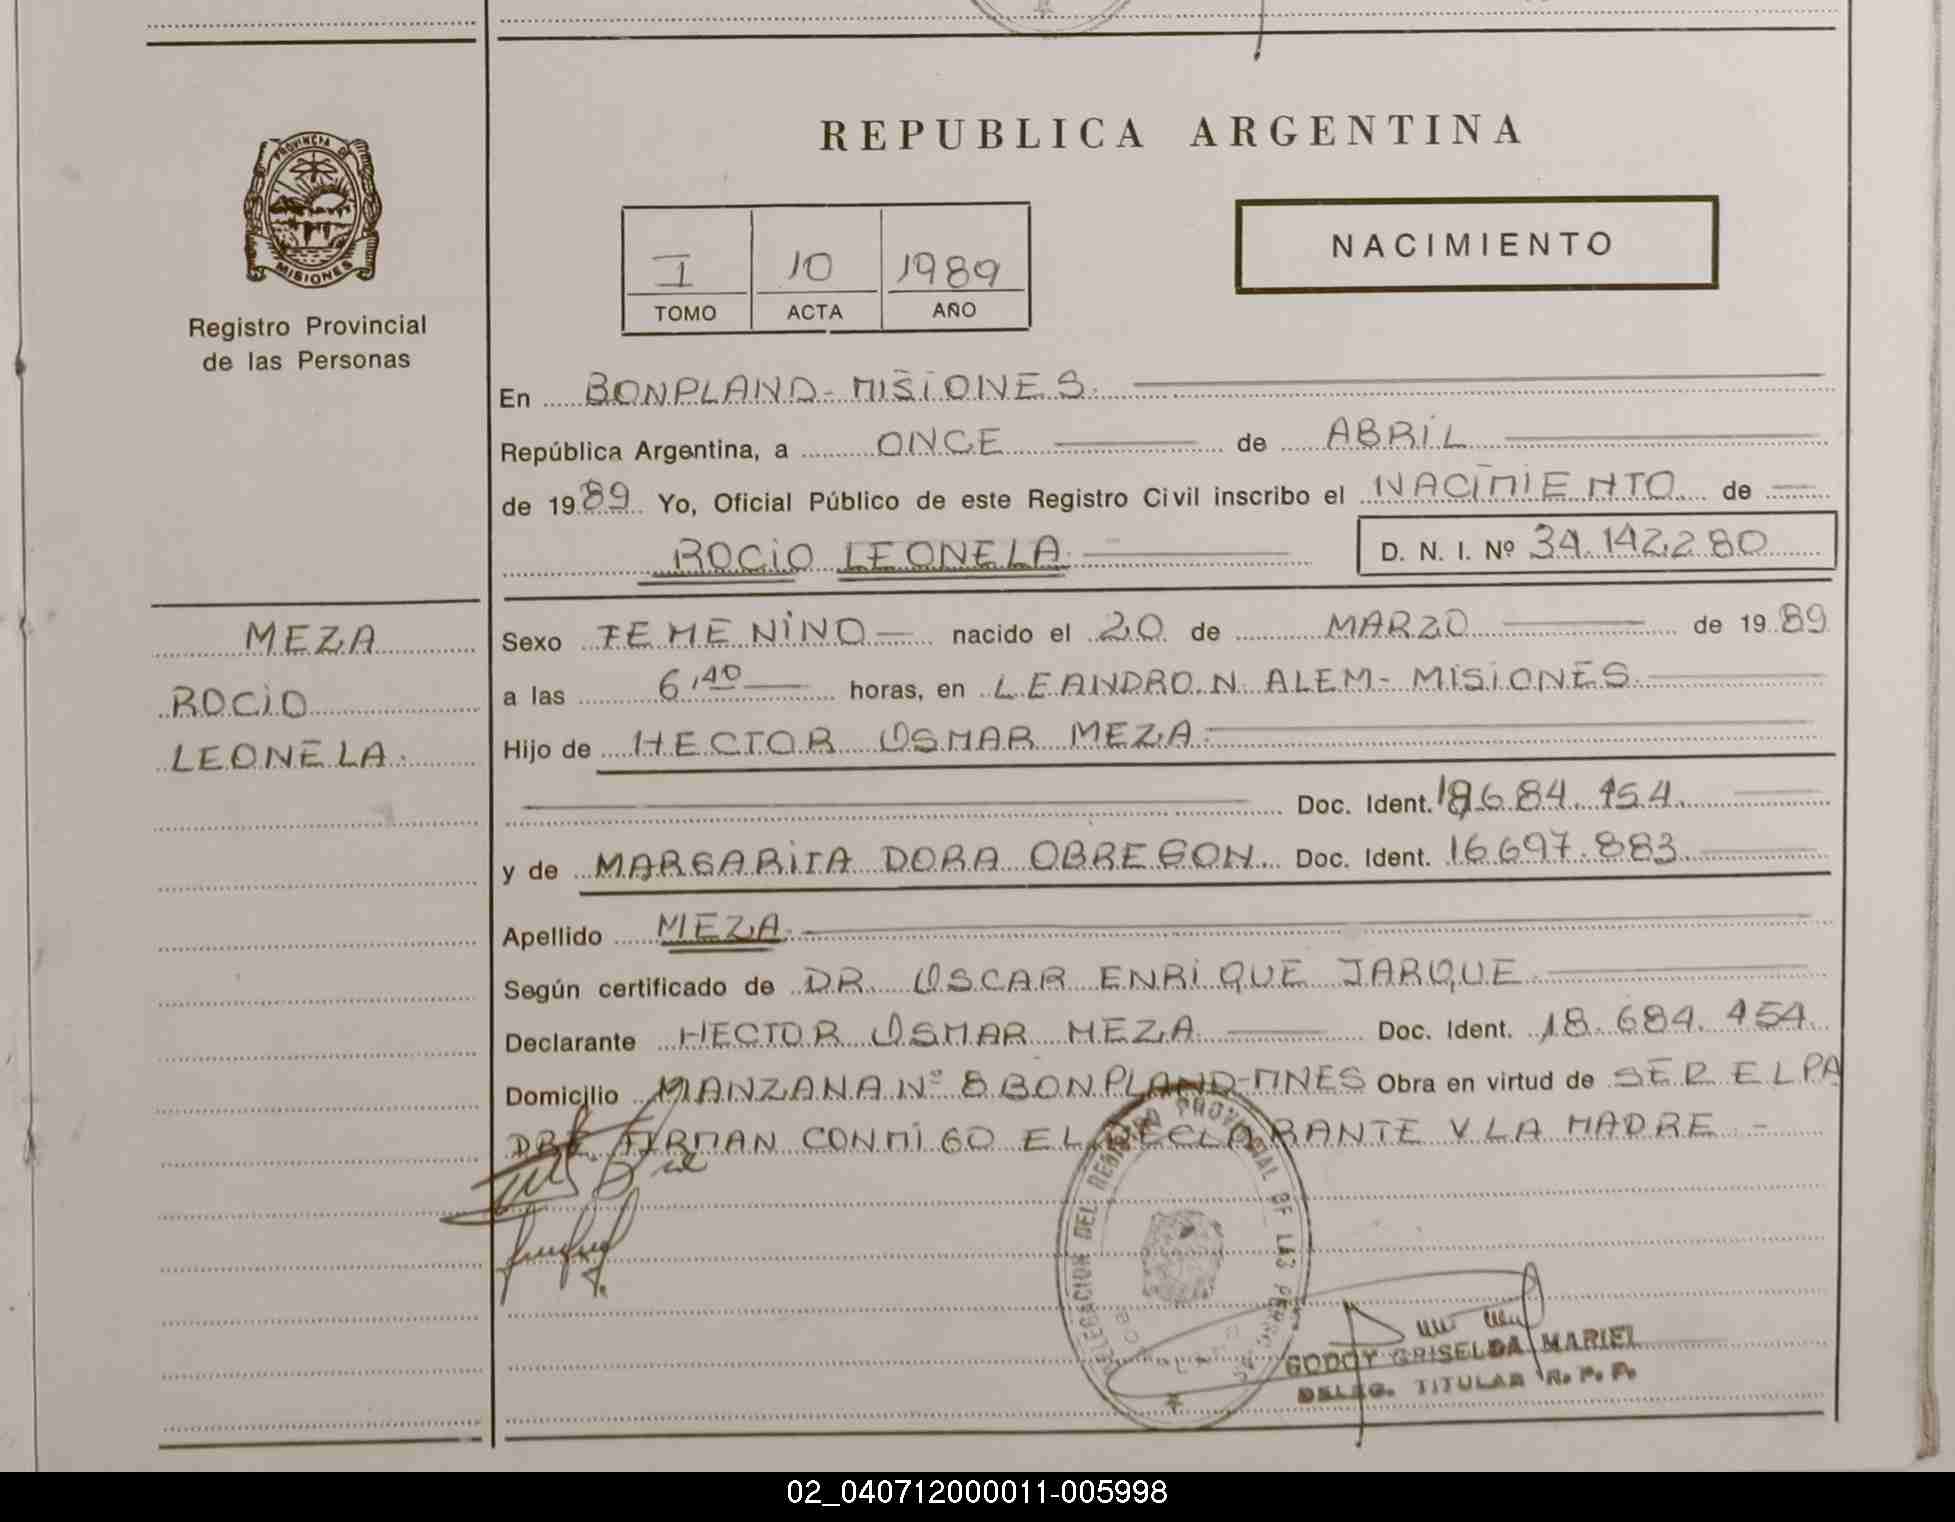 PROVINCIA DE
MISIONES
Registro Provincial
de las Personas
REPUBLICA ARGENTINA
I 10 1989
TOMO ACTA AÑO
NACIMIENTO
En BONPLAND - MISIONES.
República Argentina, a ONCE de ABRIL
de 1989 Yo, Oficial Público de este Registro Civil inscribo el NACIMIENTO de
ROCIO LEONELA. D. N. I. Nº 34.142.280
MEZA
ROCIO
LEONELA.
Sexo FEMENINO nacido el 20 de MARZO de 1989
a las 6,40 horas, en LEANDRO N. ALEM - MISIONES.
Hijo de HECTOR OSMAR MEZA.
Doc. Ident. 18.684.454.
y de MARGARITA DORA OBREGON Doc. Ident. 16.697.883
Apellido MEZA.
Según certificado de DR. OSCAR ENRIQUE JARQUE
Declarante HECTOR OSMAR MEZA Doc. Ident. 18.684.454
Domicilio MANZANA Nº 8 BONPLAND-MNES Obra en virtud de SER EL PA
DRE. FIRMAN CONMIGO EL DECLARANTE Y LA MADRE -
DELEGACION DEL REGISTRO PROVINCIAL DE LAS PERSONAS
GODOY GRISELDA MARIEL
DELEG. TITULAR R. P. P.
02_040712000011-005998